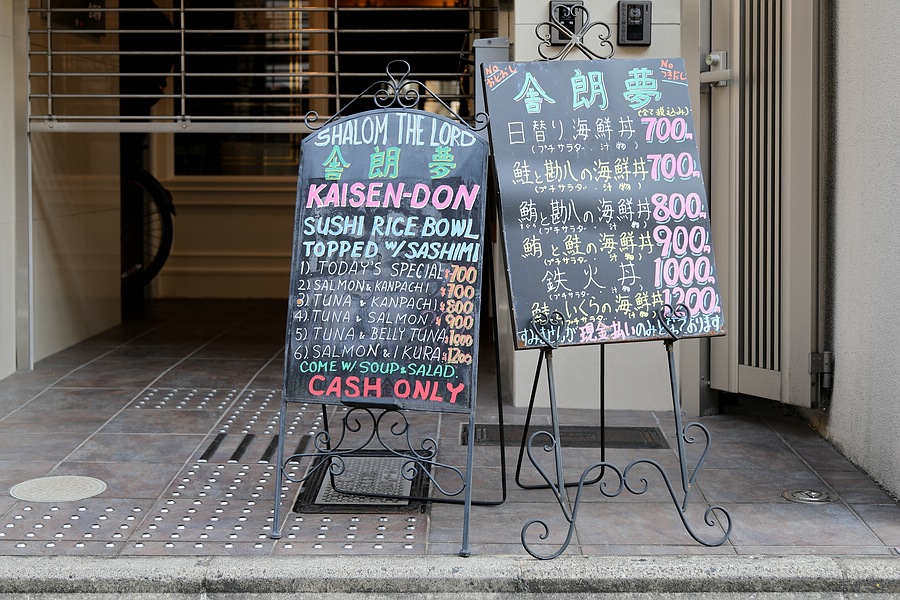 SHALOM THE LORD
舎 朗 夢
KAISEN-DON
SUSHI RICE BOWL
TOPPED W/SASHIMI
1). TODAY'S SPECIAL 700
2) SALMON & KANPACHI 700
3) TUNA & KANPACHI 800
4) TUNA & SALMON 900
5) TUNA & BELLY TUNA 1000
6) SALMON & IKURA 1200
COME W/ SOUP & SALAD.
CASH ONLY
舎 朗 夢
(全て税込み)
日替り海鮮丼 700
(プチサラダ・汁物)
鮭と勘八の海鮮丼 700
(プチサラダ・汁物)
鮪と勘八の海鮮丼 800
(プチサラダ・汁物)
鮪と鮭の海鮮丼 900
(プチサラダ・汁物)
鉄火丼 1000
(プチサラダ・汁物)
鮭といくらの海鮮丼 1200
すみませんが現金払いのみとなっております